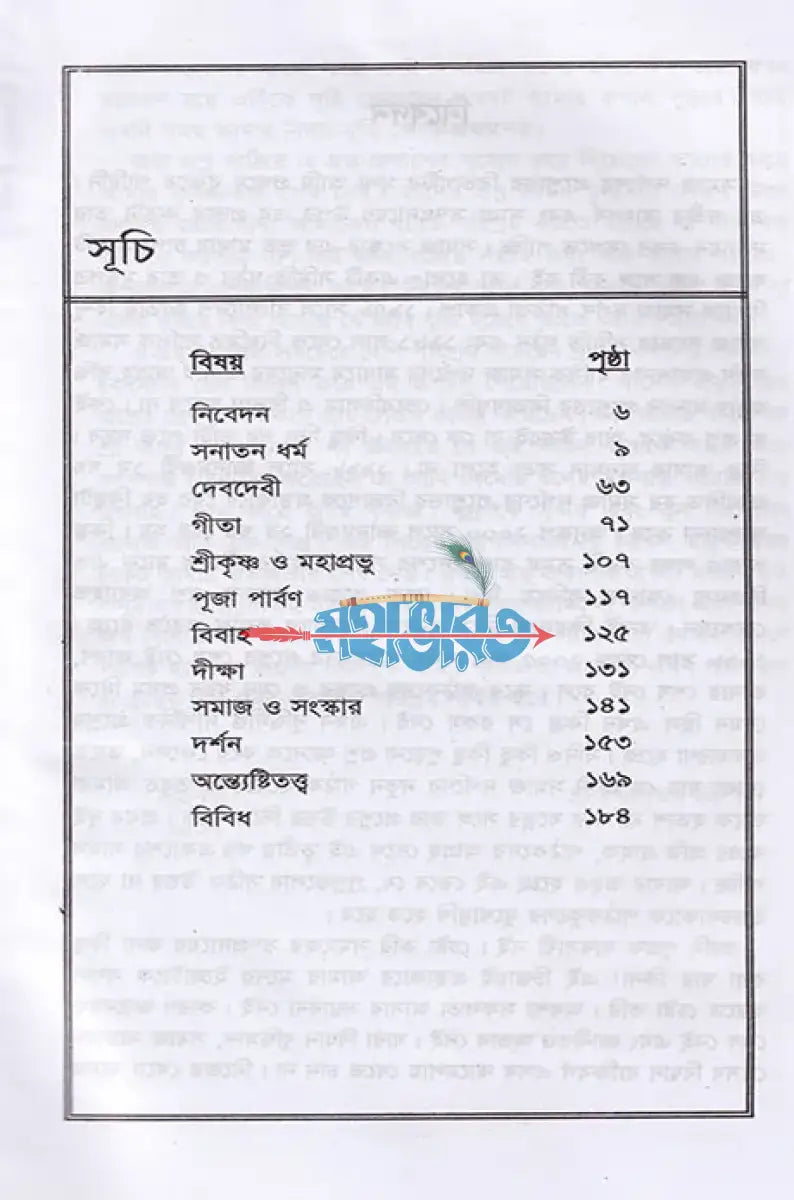 সূচি
বিষয় পৃষ্ঠা
নিবেদন ৬
সনাতন ধর্ম ৯
দেবদেবী ৬৩
গীতা ৭১
শ্রীকৃষ্ণ ও মহাপ্রভু ১০৭
পূজা পার্বণ ১১৭
বিবাহ ১২৫
মহাভারত
দীক্ষা ১৩১
সমাজ ও সংস্কার ১৪১
দর্শন ১৫৩
অন্ত্যেষ্টিতত্ত্ব ১৬৯
বিবিধ ১৮৪